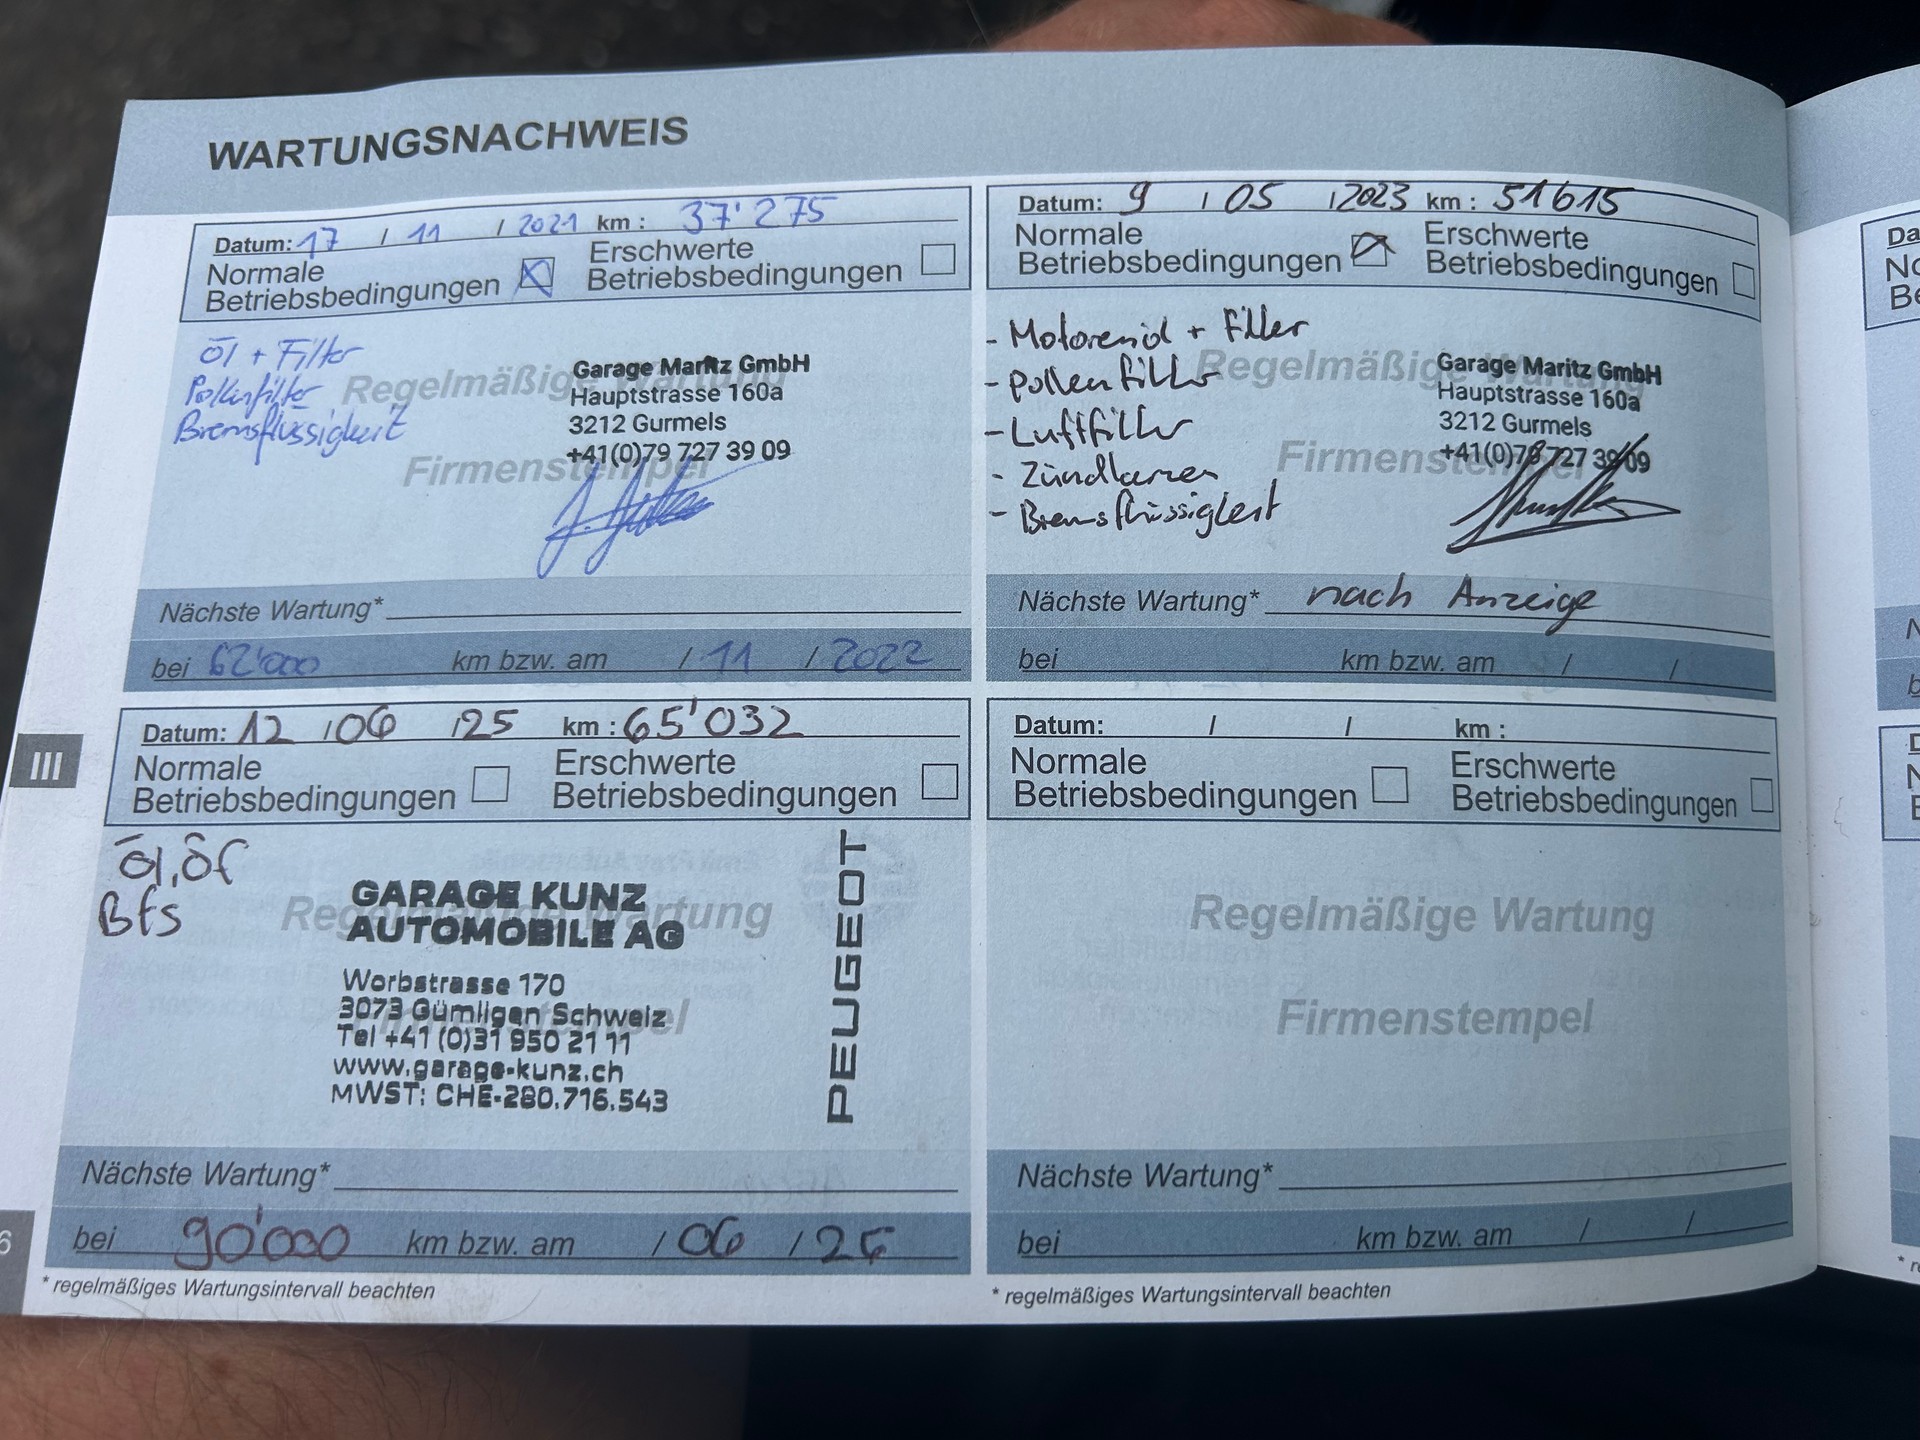 WARTUNGSNACHWEIS
Datum: 17 / 11 / 2021 km : 37'275
Normale Betriebsbedingungen
Erschwerte Betriebsbedingungen
Öl + Filter
Pollenfilter
Bremsflüssigkeit
Regelmäßige Wartung
Firmenstempel
Garage Maritz GmbH
Hauptstrasse 160a
3212 Gurmels
+41(0)79 727 39 09
Nächste Wartung*
bei 62'000 km bzw. am / 11 / 2022
Datum: 9 / 05 / 2023 km : 51615
Normale Betriebsbedingungen
Erschwerte Betriebsbedingungen
- Motorenöl + Filter
- Pollenfilter
- Luftfilter
- Zündkerzen
- Bremsflüssigkeit
Regelmäßige Wartung
Firmenstempel
Garage Maritz GmbH
Hauptstrasse 160a
3212 Gurmels
+41(0)79 727 39 09
Nächste Wartung* nach Anzeige
bei km bzw. am / /
III
Datum: 12 / 06 / 25 km : 65'032
Normale Betriebsbedingungen
Erschwerte Betriebsbedingungen
Öl, Öf
Bfs
Regelmäßige Wartung
Firmenstempel
GARAGE KUNZ
AUTOMOBILE AG
Worbstrasse 170
3073 Gümligen Schweiz
Tel +41 (0)31 950 21 11
www.garage-kunz.ch
MWST: CHE-280.716.543
PEUGEOT
Nächste Wartung*
bei 90'000 km bzw. am / 06 / 26
* regelmäßiges Wartungsintervall beachten
Datum: / / km :
Normale Betriebsbedingungen
Erschwerte Betriebsbedingungen
Regelmäßige Wartung
Firmenstempel
Nächste Wartung*
bei km bzw. am / /
* regelmäßiges Wartungsintervall beachten
6